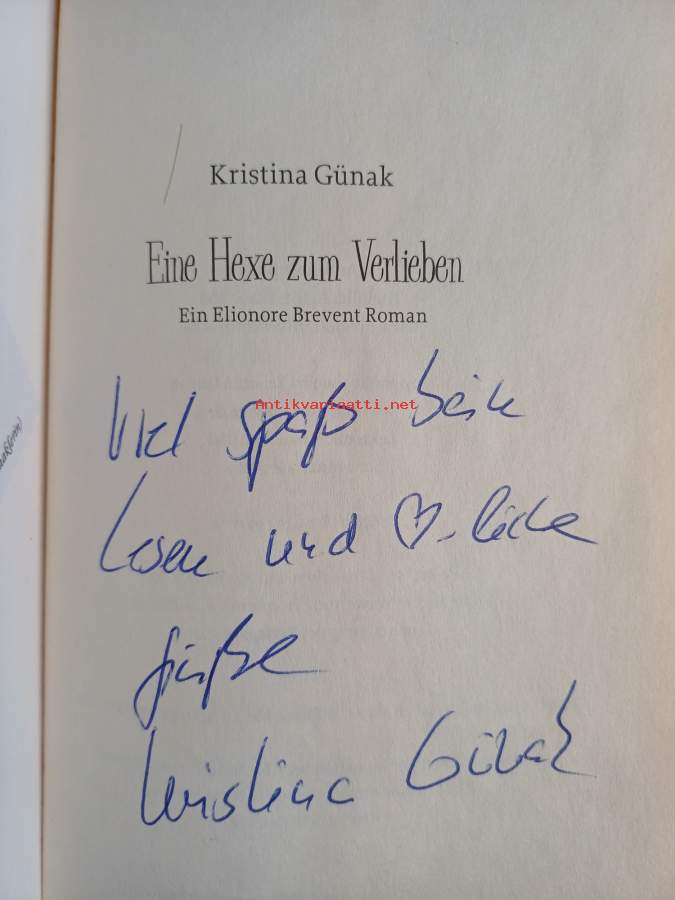 Kristina Günak
Eine Hexe zum Verlieben
Ein Elionore Brevent Roman
Viel Spaß beim
Antikvariaatti.net
Lesen und ♡-liche
Grüße
Kristina Günak